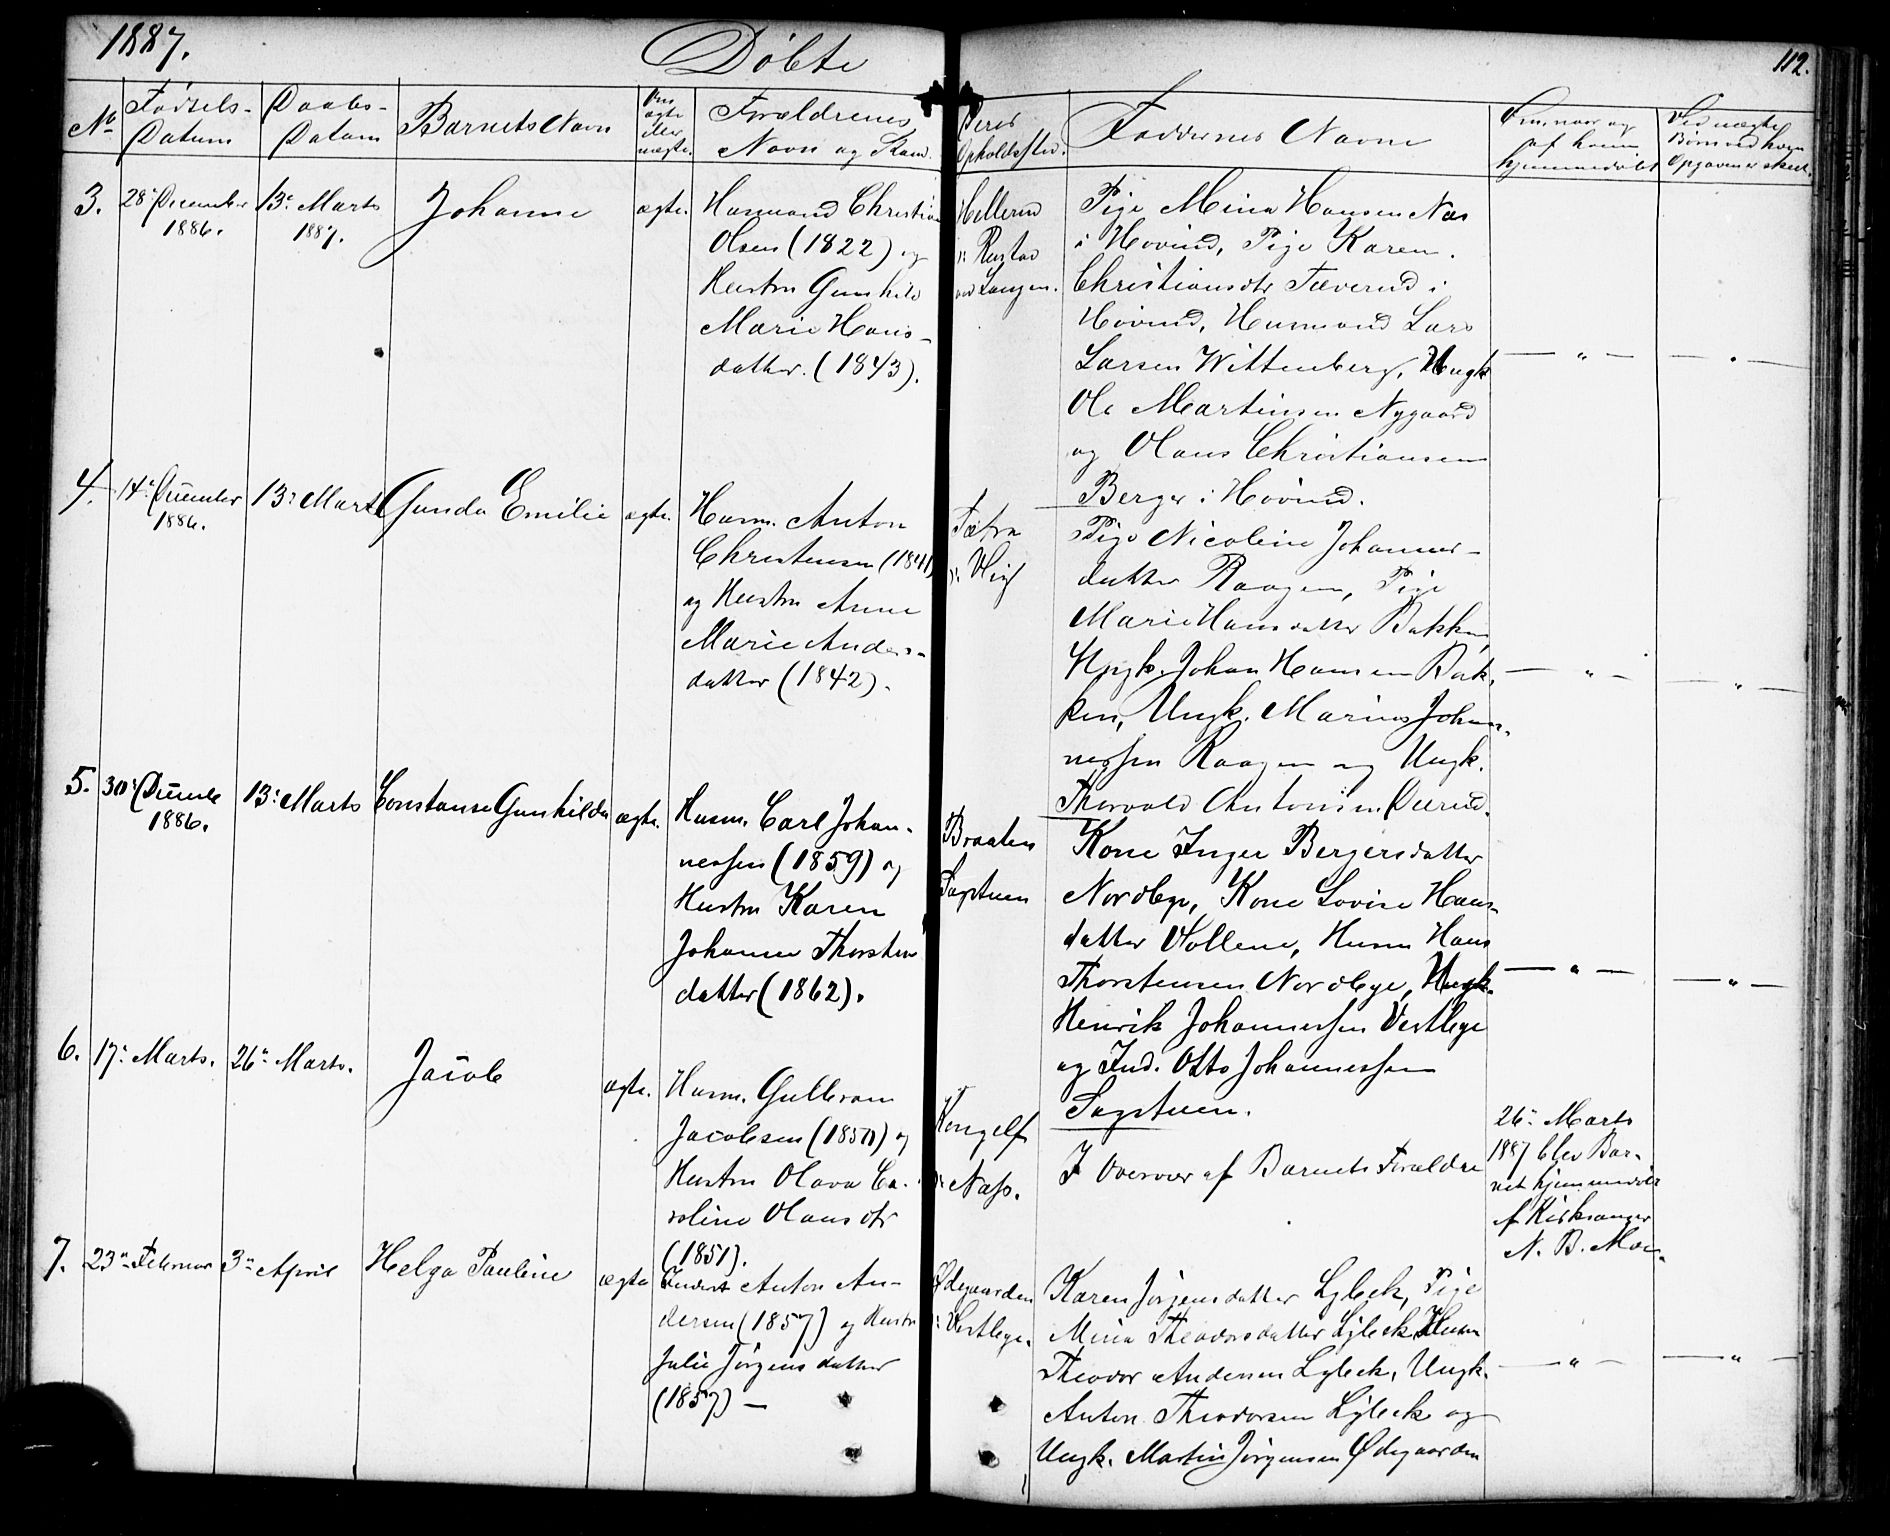 1887.
Döbte
112.
No
Födsels-
Datum
Daabs-
Datum
Barnets Navn
Om
ægte
eller
uægte.
Forældrenes
Navn og Stand.
Deres
Opholdssted.
Faddernes Navne
Om, naar og
af hvem
hjemmedöbt
Ved uægte
Börn ved hvem
Opgaven er skeet.
3.
28: December
1886.
13: Marts
1887.
Johanne
ægte.
Husmand Christian
Olsen (1822) og
Hustru Gunhild
Marie Hans-
datter. (1843).
Hellerud
Rustad
ved Langen.
Pige Mina Hansen Næs
i Hovind, Pige Karen
Christiansdtr Tæverud i
Hövind, Husmand Lars
Larsen Wittenberg, Ungk
Ole Martinsen Nygaard
og Olaus Christiansen
Berger i Hövind.
— " —
— " —
4.
14: December
1886.
13: Marts
Gunda Emilie
ægte.
Husm. Anton
Christensen (1841)
og Hustru Anne
Marie Anders-
datter (1842).
Tætra
Pige Nicoline Johannes-
datter Raagen, Pige
Marie Hansdatter Bakken,
Ungk. Johan Hansen Bak-
ken, Ungk. Marius Johan-
nessen Raagen og Ungk.
Thorvald Antonsen
— " —
— " —
5.
30: Decembr
1886.
13: Marts
Constanse Gunhilda
ægte.
Husm. Carl Johan-
nessen (1859) og
Hustru Karen
Johanne Thorsten
datter (1862).
Braaten
Sagstuen
Kone Inger Bergersdatter
Nordbye, Kone Lovise Hans-
datter Vollene, Husm Hans
Thorstensen Nordbye, Ungk.
Henrik Johannessen Vestbye
og Ind. Otto Johannessen
Sagstuen.
— " —
— " —
6.
17: Marts.
26: Marts.
Jacob
ægte.
Husm. Gulbran
Jacobsen (1850) og
Hustru Olava Ca-
roline Olausdtr
(1851).
Kongelf
Næss.
I Overvær af Barnets Forældre
26: Marts
1887 blev Bar-
net hjemmedöbt
af Kirksanger
N. B. Moe.
7.
23: Februar
3: April
Helga Pauline
ægte
Inderst Anton An-
dersen (1857) og Hustru
Julie Jörgensdatter
(1857) —
Ødegaarden
Vestbye.
Karen Jörgensdatter Lybeck, Pige
Mina Theodorsdatter Lybeck, Husm
Theodor Andersen Lybeck, Ungk.
Anton Theodorsen Lybeck og
Ungk. Martin Jörgensen Ødegaarden
— " —
— " —